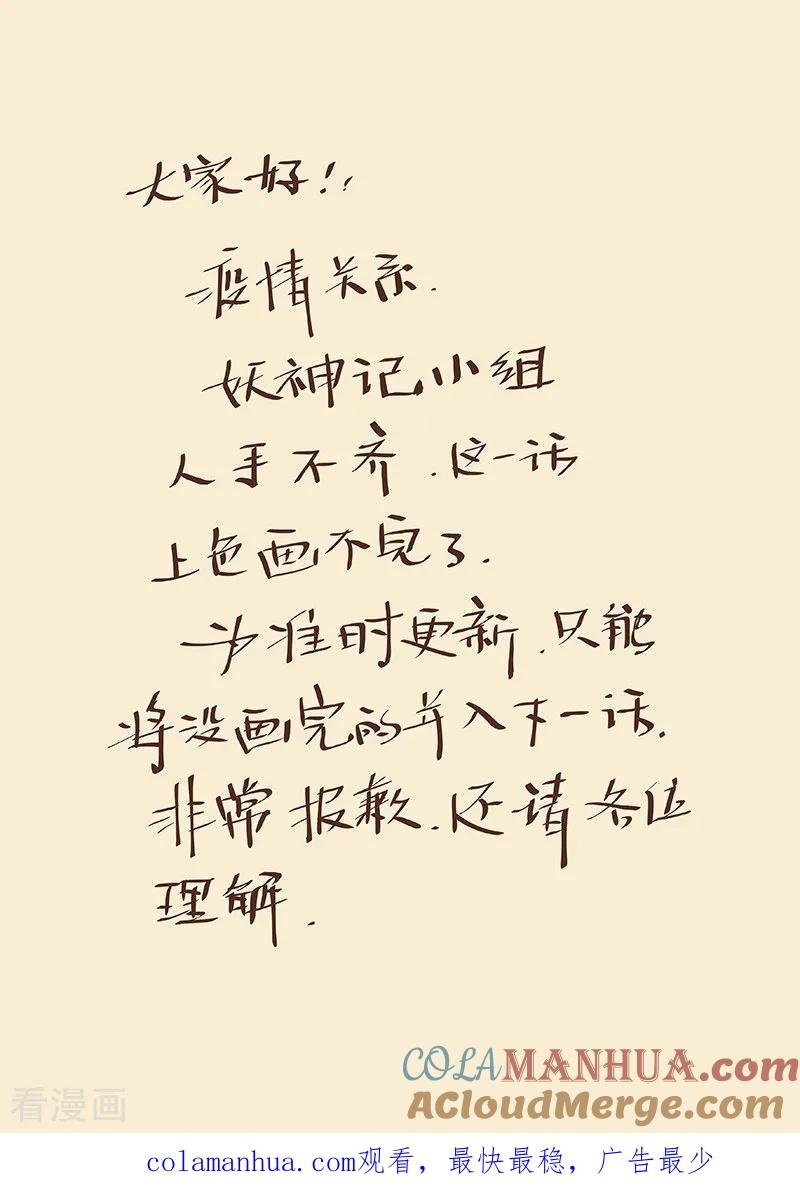 大家好!!
疫情关系.
妖神记小组
人手不齐.这一话
上色画不完了.
为准时更新.只能
将没画完的并入下一话.
非常报歉.还请各位
理解.
COLAMANHUA.com
ACloudMerge.com
看漫画
colamanhua.com观看，最快最稳，广告最少